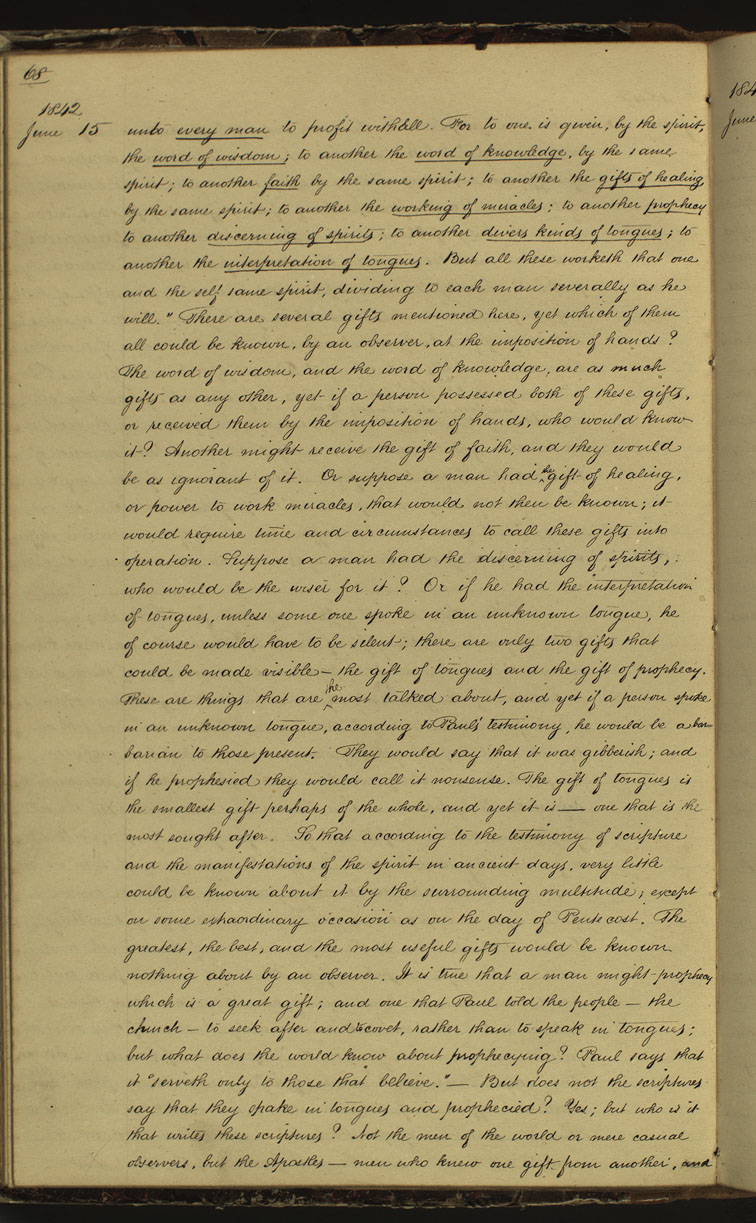 68
1842
June 15 unto every man to profit withall. For to one is given, by the spirit,
the word of wisdom; to another the word of knowledge, by the same
spirit; to another faith by the same spirit; to another the gifts of healing
by the same spirit; to another the working of miracles; to another prophecy
to another discerning of spirits; to another divers kinds of tongues; to
another the interpretation of tongues. But all these worketh that one
and the self same spirit, dividing to each man severally as he
will." There are several gifts mentioned here, yet which of them
all could be known, by an observer, at the imposition of hands?
The word of wisdom, and the word of knowledge, are as much
gifts as any other, yet if a person possessed both of these gifts,
or received them by the imposition of hands, who would know
it? Another might receive the gift of faith, and they would
be as ignorant of it. Or suppose a man had the gift of healing,
or power to work miracles, that would not then be known; it
would require time and circumstances to call these gifts into
operation. Suppose a man had the discerning of spirits,
who would be the wiser for it? Or if he had the interpretation
of tongues, unless some one spoke in an unknown tongue, he
of course would have to be silent; there are only two gifts that
could be made visible — the gift of tongues and the gift of prophecy.
These are things that are the most talked about, and yet if a person spoke
in an unknown tongue, according to Paul's testimony, he would be a bar-
barian to those present. They would say that it was gibberish; and
if he prophesied they would call it nonsense. The gift of tongues is
the smallest gift perhaps of the whole, and yet it is — one that is the
most sought after. So that according to the testimony of scripture
and the manifestations of the spirit in ancient days, very little
could be known about it by the surrounding multitude; except
on some extraordinary occasion as on the day of Pentecost. The
greatest, the best, and the most useful gifts would be known
nothing about by an observer. It is true that a man might prophecy
which is a great gift; and one that Paul told the people — the
church — to seek after and to covet, rather than to speak in tongues;
but what does the world know about prophecying? Paul says that
it "serveth only to those that believe." — But does not the scriptures
say that they spake in tongues and prophecied? Yes; but who is it
that writes these scriptures? Not the men of the world or mere casual
observers, but the Apostles — men who knew one gift from another, and
184
June